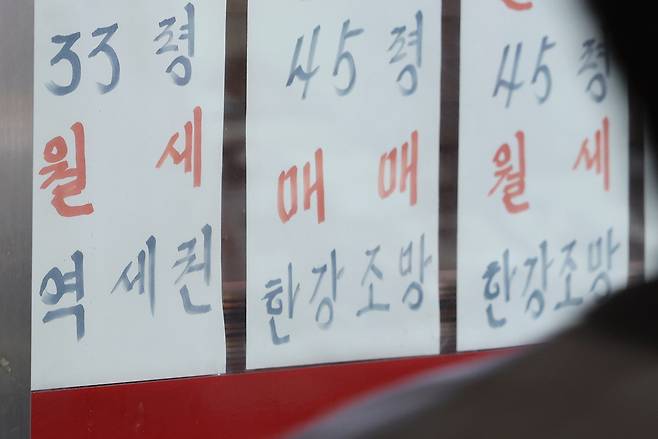 33령
월세
역세권
45령
매매
한강조망
45령
월세
한강조망